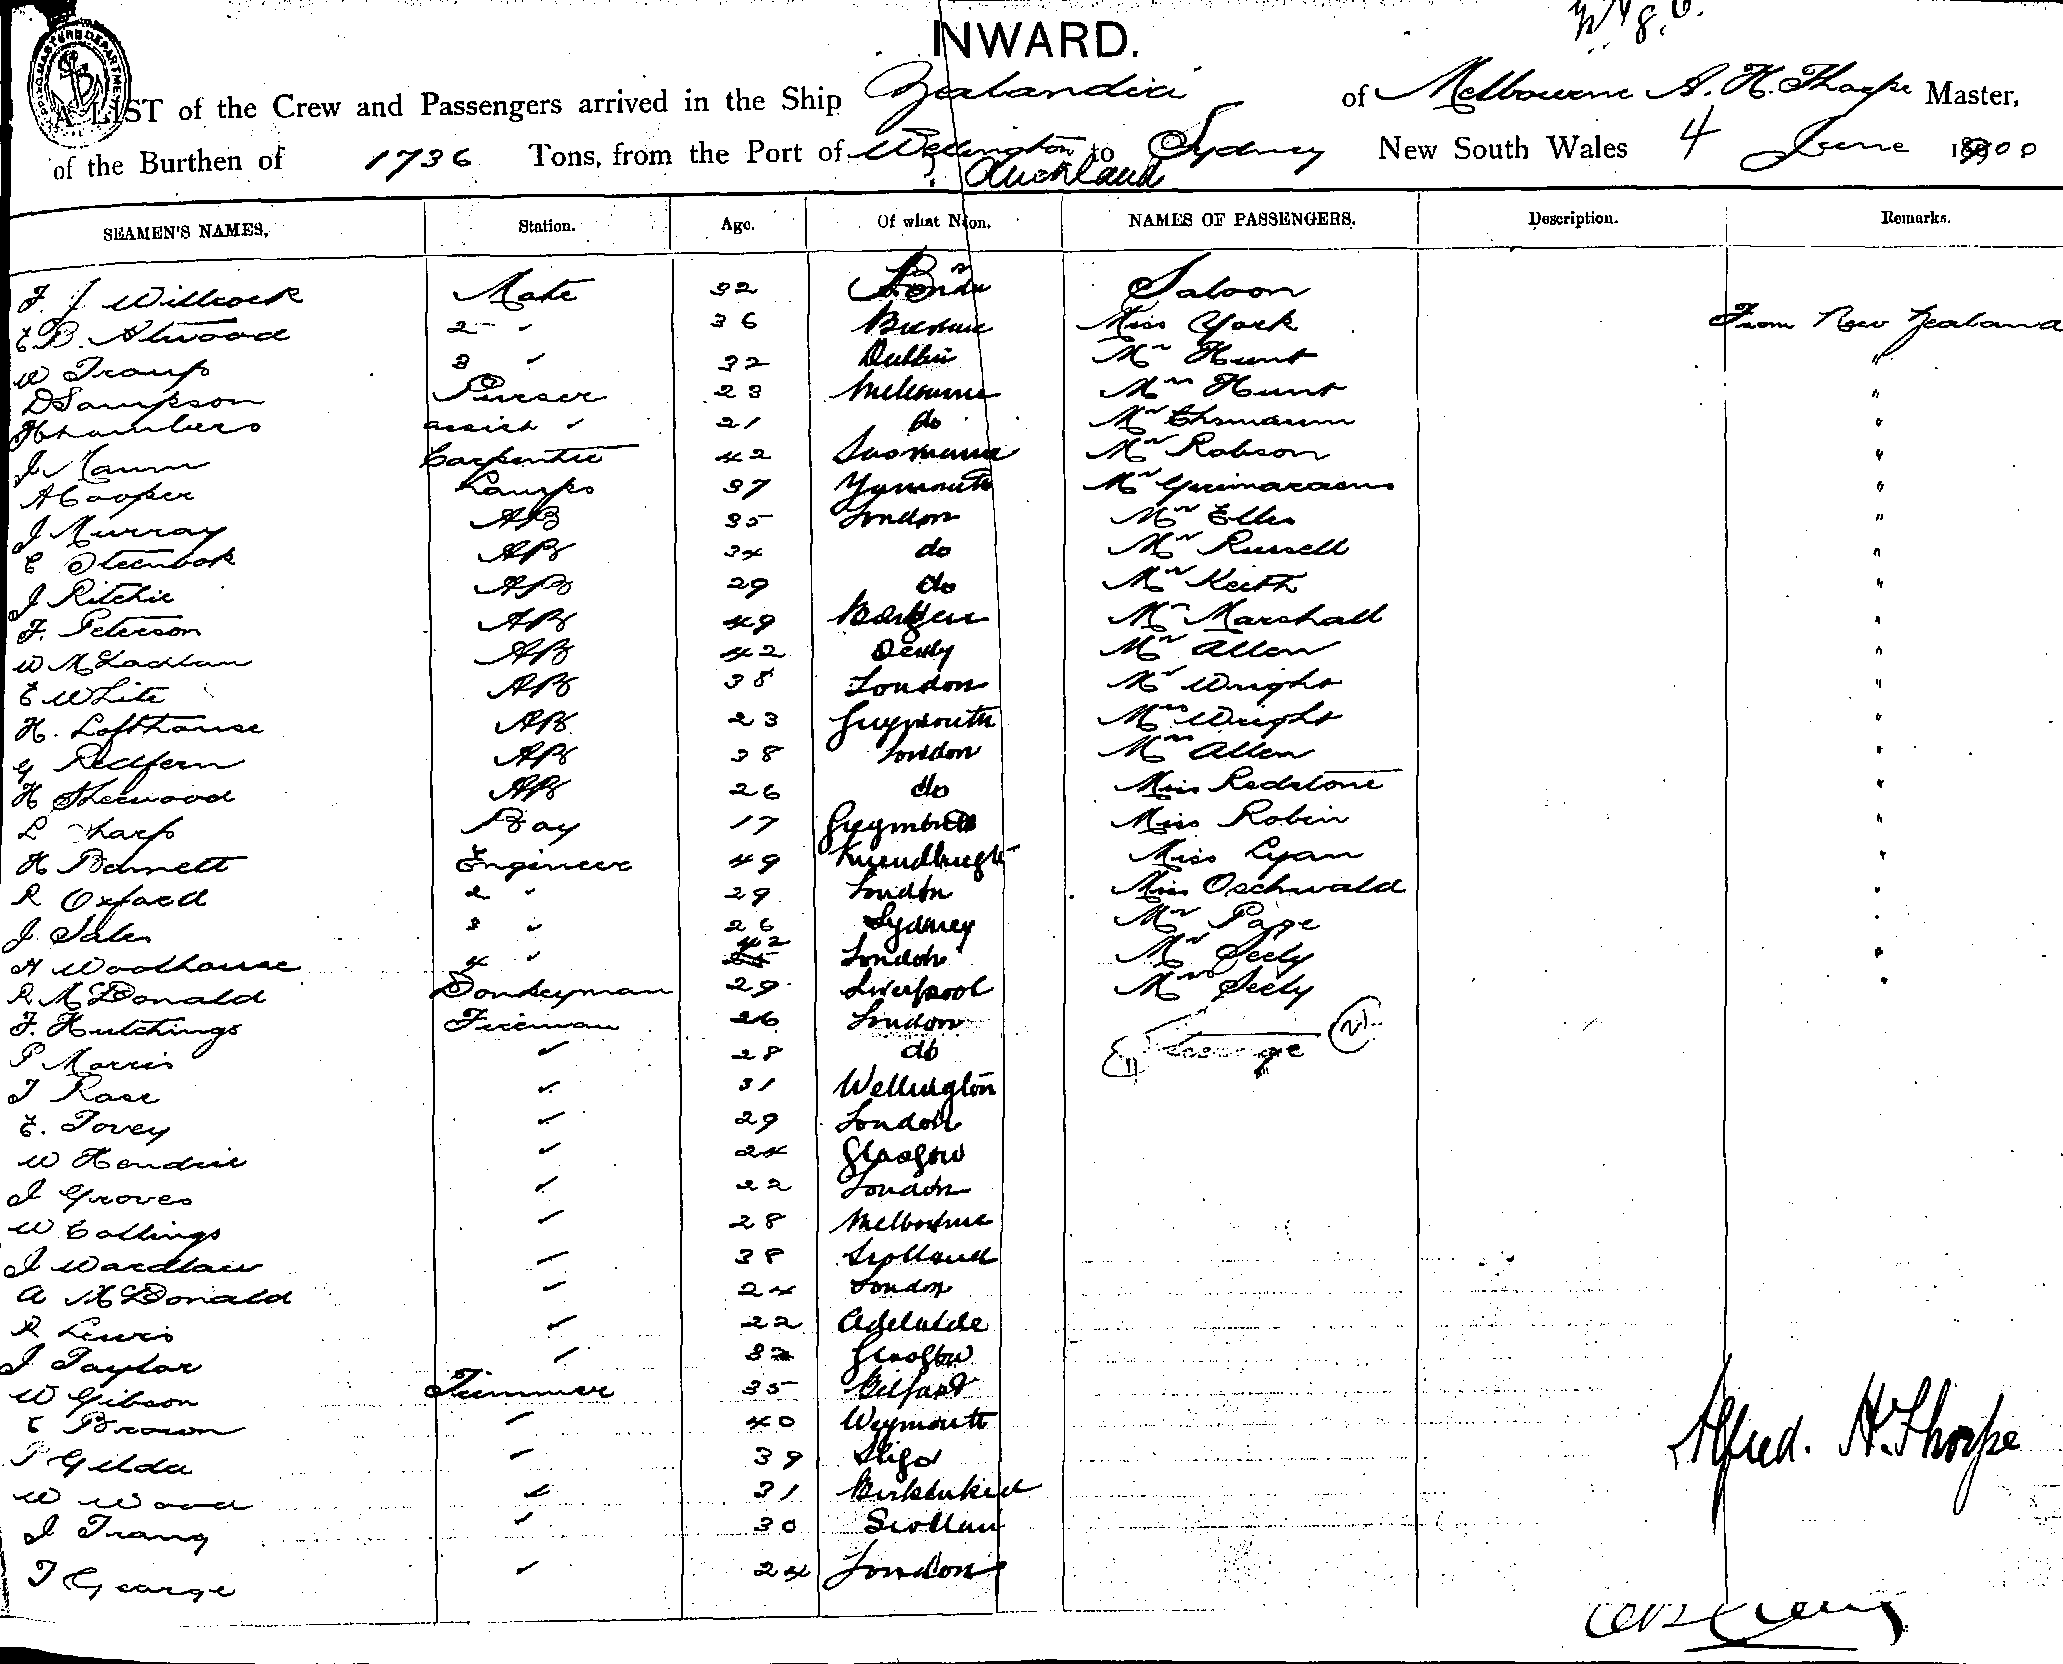 INWARD.
A LIST of the Crew and Passengers arrived in the Ship Zealandia of Melbourne A. H. Thorpe Master,
of the Burthen of 1736 Tons, from the Port of Wellington to Sydney New South Wales 4 June 1900
Auckland
SEAMEN'S NAMES. Station. Age. Of what Nation. NAMES OF PASSENGERS. Description. Remarks.
F. J. Willcock Mate 32 Saloon
E B. Atwood 2 " 36 Miss York From New Zealand
W 3 " 32 Dublin Mr Hunt "
D Sampson Purser 23 Melbourne Mrs Hunt "
H Chambers assist " 21 do Mr "
J Mann Carpenter 42 Tasmania Mr Robson "
A Cooper Lamps 37 Mr Guimaraens "
J Murray AB 35 London Mr Ellis "
C Steenbok AB 34 do Mr Russell "
J Ritchie AB 29 do Mr Keith "
F. Peterson AB 49 Bergen Mr Marshall "
W McLachlan AB 42 Mr Allen "
E White AB 38 London Mr Wright "
H. Lofthouse AB 23 Mrs Wright "
G Redfern AB 38 London Mrs Allen "
H Sherwood AB 26 do Miss Redstone "
L Sharp Boy 17 Miss Robin "
H Barnett Engineer 49 Miss Lyan "
R Oxford 2 " 29 London Miss Oschwald "
J Sales 3 " 26 Sydney Mr Page "
A Woodhouse 4 " 42 London Mr Seely "
R McDonald Donkeyman 29 Liverpool Mrs Seely "
F. Hutchings Fireman 26 London Steerage 2
P Morris " 28 do
T Rose " 31 Wellington
E. Tovey " 29 London
W Hendrie " 24 Glasgow
J Groves " 22 London
W Collings " 28 Melbourne
J Wardlaw " 38 Scotland
A McDonald " 24 London
R Lewis " 22 Adelaide
J Taylor " 32 Glasgow
W Gibson Trimmer 35 Belfast
C Brown " 40 Weymouth
P Gilda " 39 Sligo
W Wood " 31 Birkenhead
J " 30
T George " 24 London
Alfred. H. Thorpe